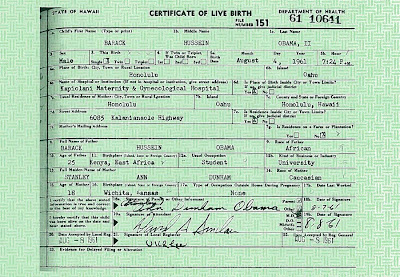 STATE OF HAWAII CERTIFICATE OF LIVE BIRTH DEPARTMENT OF HEALTH
FILE NUMBER 151 61 10641
1a. Child's First Name (Type or print) 1b. Middle Name 1c. Last Name
BARACK HUSSEIN OBAMA, II
2. Sex 3. This Birth 4. If Twin or Triplet, Was Child Born 5a. Birth Date Month Day Year 5b. Hour
Male Single Twin Triplet August 4, 1961 7:24 P.M.
6a. Place of Birth: City, Town or Rural Location 6b. Island
Honolulu Oahu
6c. Name of Hospital or Institution (If not in hospital or institution, give street address) 6d. Is Place of Birth Inside City or Town Limits?
Kapiolani Maternity & Gynecological Hospital
7a. Usual Residence of Mother: City, Town or Rural Location 7b. Island 7c. County and State or Foreign Country
Honolulu Oahu Honolulu, Hawaii
7d. Street Address 7e. Is Residence Inside City or Town Limits?
6085 Kalanianaole Highway
7f. Mother's Mailing Address 7g. Is Residence on a Farm or Plantation?
8. Full Name of Father 9. Race of Father
BARACK HUSSEIN OBAMA African
10. Age of Father 11. Birthplace 12a. Usual Occupation 12b. Kind of Business or Industry
25 Kenya, East Africa Student University
13. Full Maiden Name of Mother 14. Race of Mother
STANLEY ANN DUNHAM Caucasian
15. Age of Mother 16. Birthplace 17a. Type of Occupation Outside Home During Pregnancy 17b. Date Last Worked
18 Wichita, Kansas None
I certify that the above stated information is true and correct to the best of my knowledge. 18a. Signature of Parent or Other Informant 18b. Date of Signature
Ann Dunham Obama 8-7-61
I hereby certify that this child was born alive on the date and hour stated above. 19a. Signature of Attendant 19b. Date of Signature
8-8-61
20. Date Accepted by Local Reg. 21. Signature of Local Registrar 22. Date Accepted by Reg. General
AUG -8 1961 AUG -8 1961
23. Evidence for Delayed Filing or Alteration